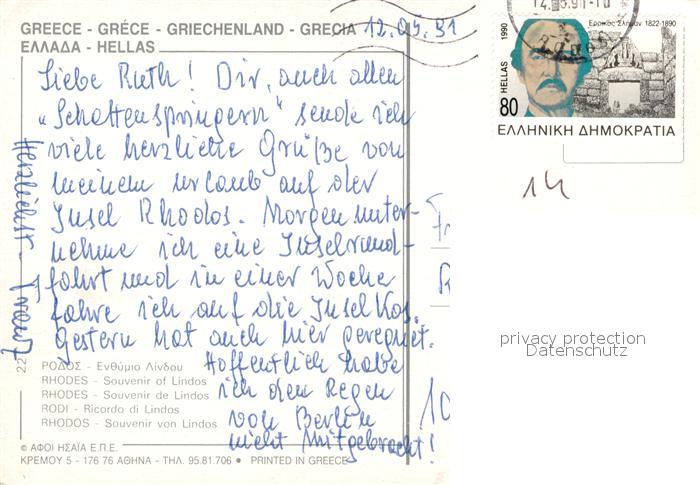 GREECE - GRÉCE - GRIECHENLAND - GRECIA
ΕΛΛΑΔΑ - HELLAS
12.05.91
Liebe Ruth! Dir, auch allen
„Schattenspringern" sende ich
viele herzliche Grüße von
meinem Urlaub auf der
Insel Rhodos. Morgen unter-
nehme ich eine Inselrund-
fahrt und in einer Woche
fahre ich auf die Insel Kos.
Gestern hat auch hier geregnet.
Hoffentlich habe
ich den Regen
von Berlin
nicht mitgebracht!
Herzlichst
22
ΡΟΔΟΣ - Ενθύμιο Λίνδου
RHODES - Souvenir of Lindos
RHODES - Souvenir de Lindos
RODI - Ricordo di Lindos
RHODOS - Souvenir von Lindos
© ΑΦΟΙ ΗΣΑΪΑ Ε.Π.Ε.
ΚΡΕΜΟΥ 5 - 176 76 ΑΘΗΝΑ - ΤΗΛ. 95.81.706 • PRINTED IN GREECE
Ερρίκος Σλήμαν 1822-1890
1990
HELLAS
80
ΕΛΛΗΝΙΚΗ ΔΗΜΟΚΡΑΤΙΑ
14
10
privacy protection
Datenschutz